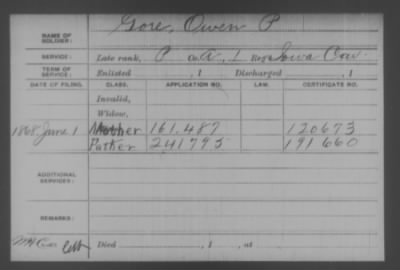 NAME OF SOLDIER: Gore, Owen P
SERVICE: Late rank, P Co. A, 1 Reg't Iowa Cav.
TERM OF SERVICE: Enlisted , 1 Discharged , 1
DATE OF FILING. CLASS. APPLICATION NO. LAW. CERTIFICATE NO.
Invalid,
Widow,
1868 June 1 Mother 161.487 120673
Father 241795 191660
ADDITIONAL SERVICES:
REMARKS:
Died , 1 , at